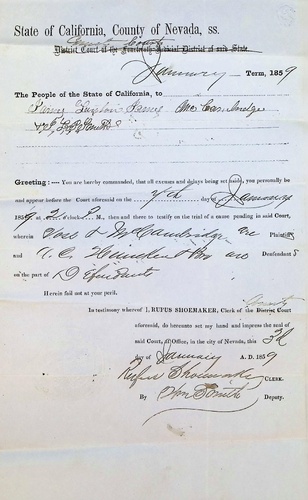 State of California, County of Nevada, ss.
County Court
District Court of the Fourteenth Judicial District of said State.
January Term, 1859
The People of the State of California, to
James
Smith
Greeting:—You are hereby commanded, that all excuses and delays being set aside, you personally be
and appear before the Court aforesaid on the 7th day of January
1859, o'clock M., then and there to testify on the trial of a cause pending in said Court,
wherein are Plaintiff
and are Defendants
on the part of Defendants
Herein fail not at your peril.
In testimony whereof I, RUFUS SHOEMAKER, Clerk of the District Court
County
aforesaid, do hereunto set my hand and impress the seal of
said Court, at Office, in the city of Nevada, this 3d
day of January A. D. 1859
Rufus Shoemaker CLERK.
By Wm Smith Deputy.